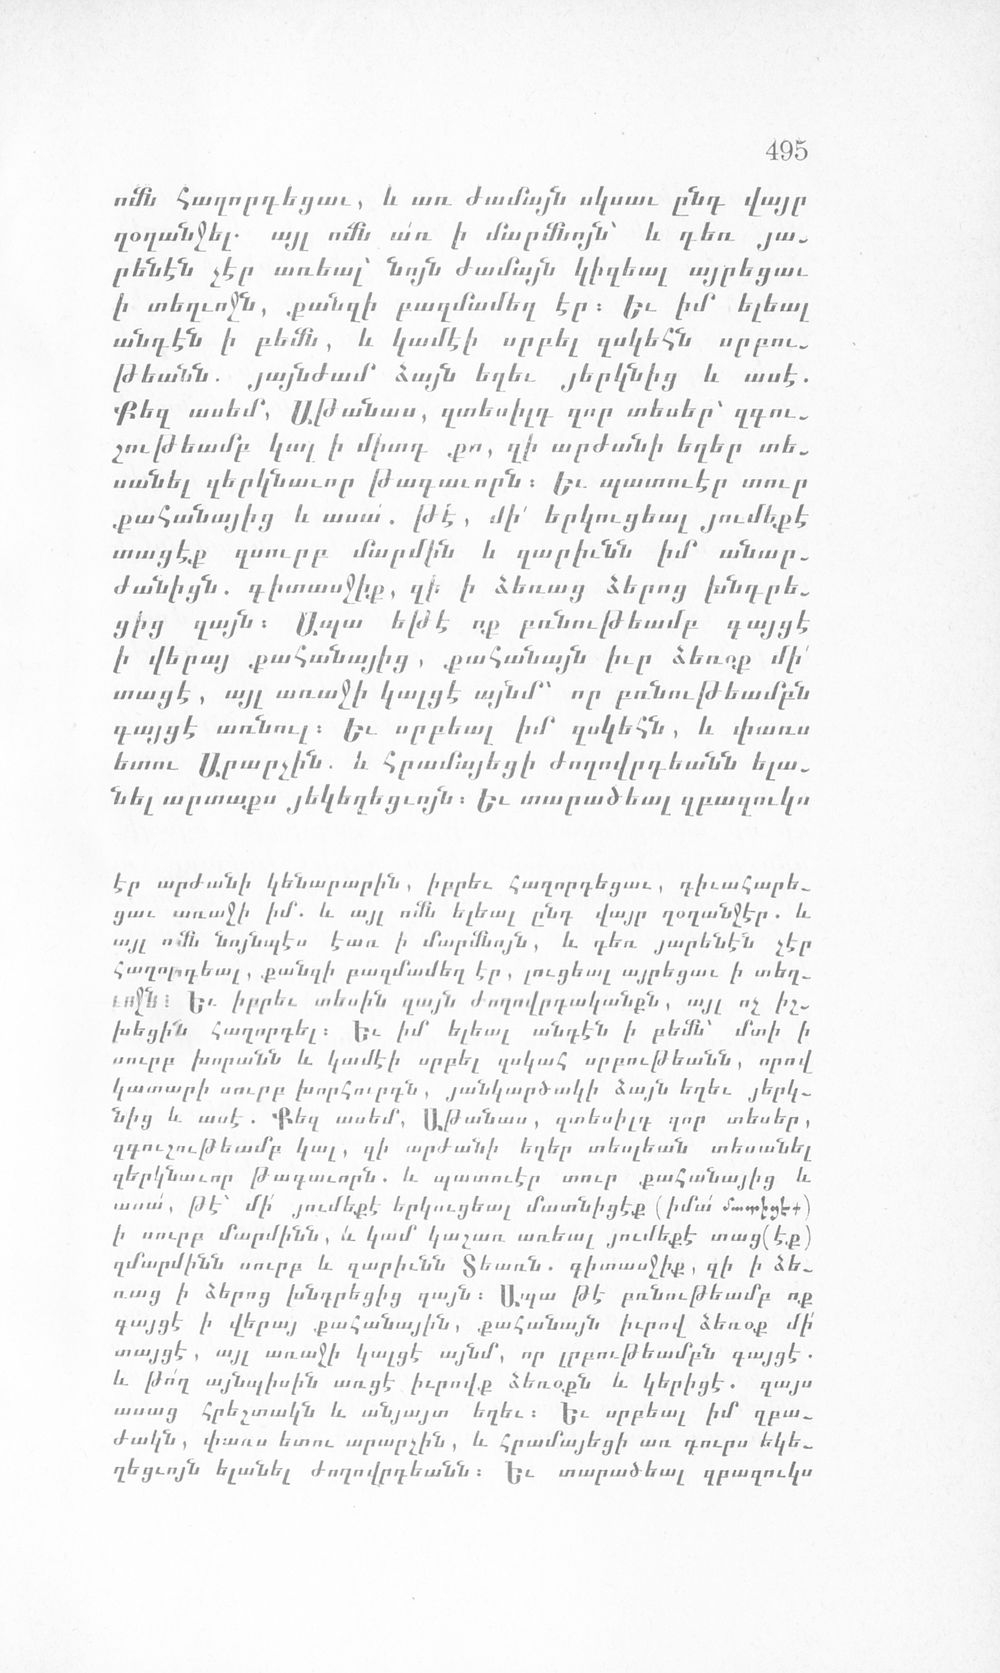 495
ոմն հաղորդեցաւ, և առ ժամայն սկսաւ ընդ վայր
զօղանջել. այլ ոմն ա՛ռ ի մարմնոյն՝ և դեռ յա-
րենէն չէր առեալ՝ նոյն ժամայն կիզեալ այրեցաւ
ի տեղւոջն, քանզի բազմամեղ էր։ Եւ իմ ելեալ
անդէն ի բեմն, և կամէի սրբել զսկեհն սրբու-
թեանն. յայնժամ ձայն եղեւ յերկնից և ասէ.
Քեզ ասեմ, Աթանաս, զտեսիլդ զոր տեսեր՝ զգու-
շութեամբ կալ ի միտդ քո, զի արժանի եղեր տե-
սանել զերկնաւոր թագաւորն։ Եւ պատուէր տուր
քահանայից և ասա՛. թէ, մի՛ երկուցեալ յումեքէ
տացէք զսուրբ մարմին և զարիւնն իմ անար-
ժանիցն. գիտասջիք, զի ի ձեռաց ձերոց խնդրե-
ցից զայն։ Ապա եթէ ոք բռնութեամբ գայցէ
ի վերայ քահանայից, քահանայն իւր ձեռօք մի՛
տացէ, այլ առաջի կալցէ այնմ՝ որ բռնութեամբն
գայցէ առնուլ։ Եւ սրբեալ իմ զսկեհն, և փառս
ետու Արարչին. և հրամայեցի ժողովրդեանն ելա-
նել արտաքս յեկեղեցւոյն։ Եւ տարածեալ զբազուկս
էր արժանի կենարարին, իբրեւ հաղորդեցաւ, դիւահարե-
ցաւ առաջի իմ. և այլ ոմն ելեալ ընդ վայր զօղանջէր. և
այլ ոմն նոյնպէս էառ ի մարմնոյն, և դեռ յարենէն չէր
հաղորդեալ, քանզի բազմամեղ էր, լուցեալ այրեցաւ ի տեղ-
ւոջն։ Եւ իբրեւ տեսին զայն ժողովրդականքն, այլ ոչ իշ-
խեցին հաղորդել։ Եւ իմ ելեալ անդէն ի բեմն՝ մտի ի
սուրբ խորանն և կամէի սրբել զսկահ սրբութեանն, որով
կատարի սուրբ խորհուրդն, յանկարծակի ձայն եղեւ յերկ-
նից և ասէ. Քեզ ասեմ, Աթանաս, զտեսիլդ զոր տեսեր,
զգուշութեամբ կալ, զի արժանի եղեր տեսլեան տեսանել
զերկնաւոր թագաւորն. և պատուէր տուր քահանայից և
ասա՛, թէ՝ մի՛ յումեքէ երկուցեալ մատնիցէք (իմա՛ մատիցէք)
ի սուրբ մարմինն, և կամ կաշառ առեալ յումեքէ տաց(է.ք)
զմարմինն սուրբ և զարիւնն Տեառն. գիտասջիք, զի ի ձե-
ռաց ի ձերոց խնդրեցից զայն։ Ապա թէ բռնութեամբ ոք
գայցէ ի վերայ քահանային, քահանայն իւրով ձեռօք մի՛
տայցէ, այլ առաջի կալցէ այնմ, որ լրբութեամբն գայցէ.
և թո՛ղ այնպիսին առցէ իւրովք ձեռօքն և կերիցէ. զայս
ասաց հրեշտակն և անյայտ եղեւ։ Եւ սրբեալ իմ զբա-
ժակն, փառս ետու արարչին, և հրամայեցի առ դուրս եկե-
ղեցւոյն ելանել ժողովրդեանն։ Եւ տարածեալ զբազուկս